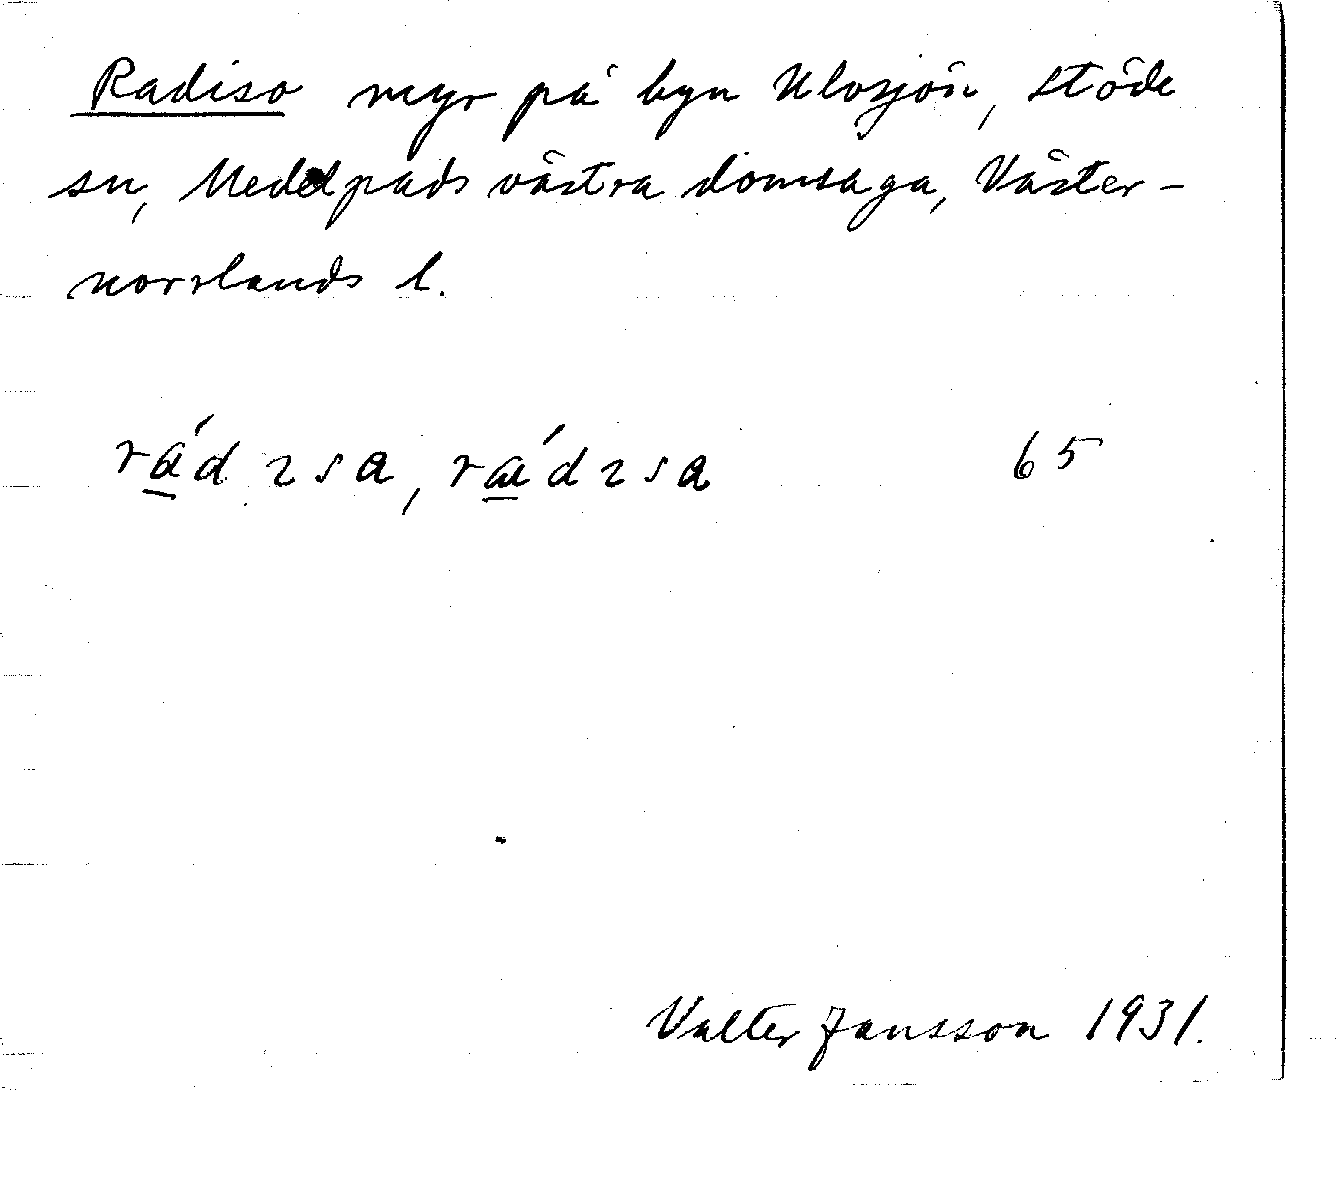 Radiso myr på byn Ulvsjön, Stöde
sn, Medelpads västra domsaga, Väster-
norrlands l.
rá̱d ɿsa, rǽ̱dɿsa 65
Valter Jansson 1931.